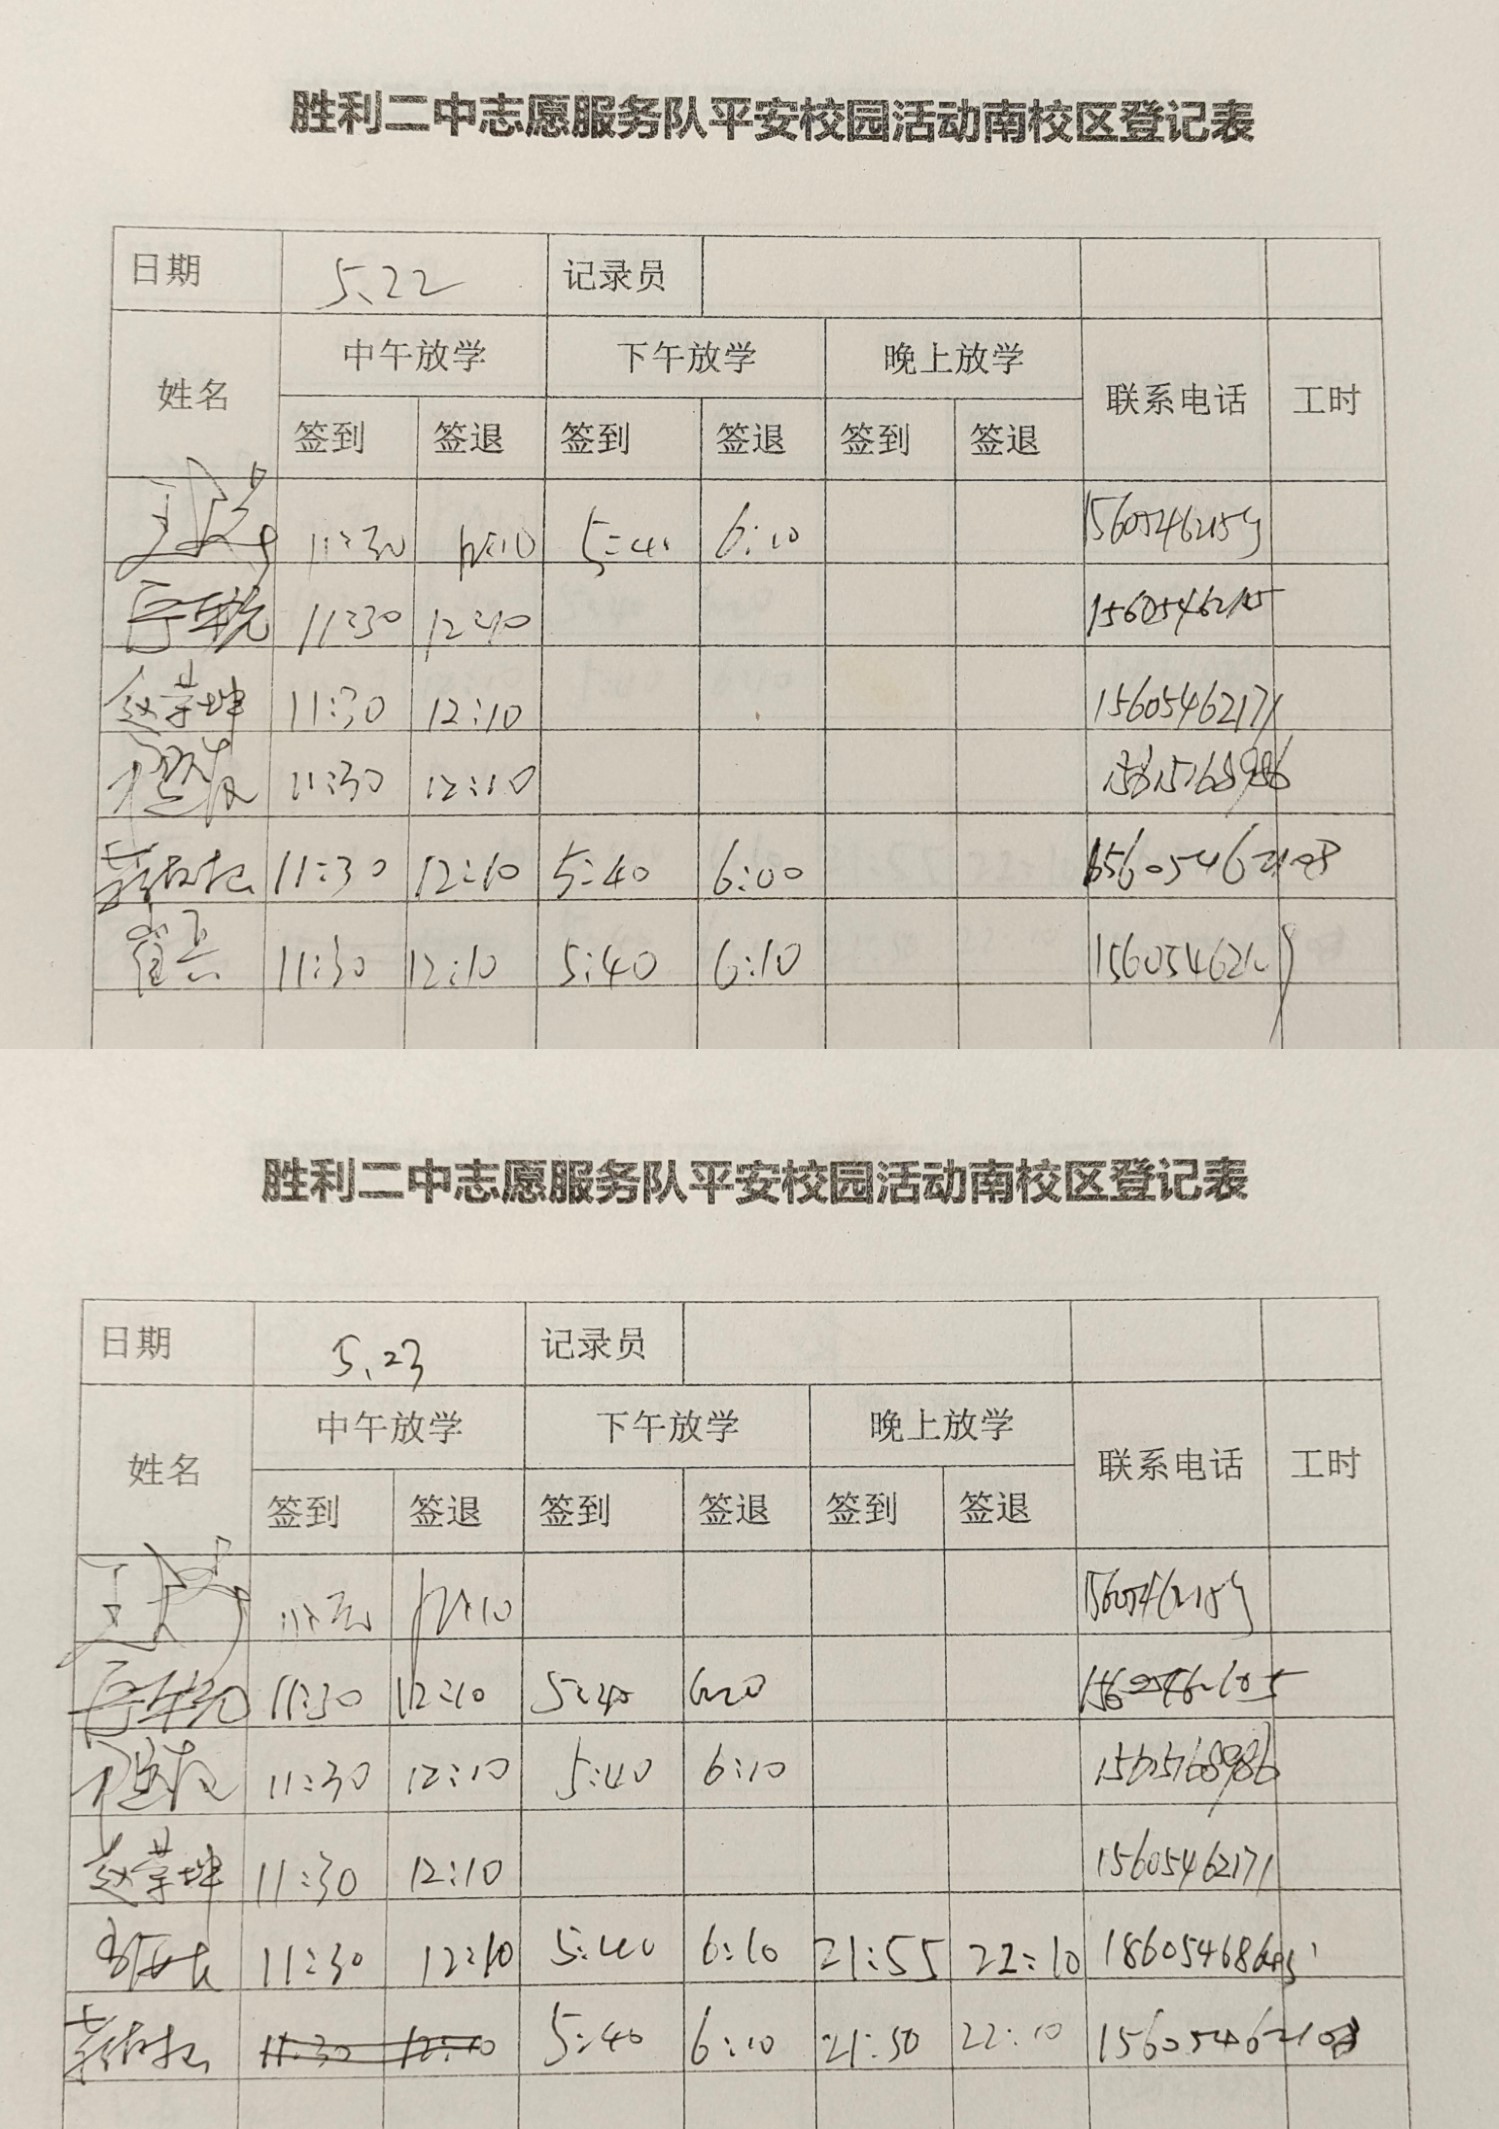 胜利二中志愿服务队平安校园活动南校区登记表
日期 5.22 记录员
姓名 中午放学 下午放学 晚上放学 联系电话 工时
签到 签退 签到 签退 签到 签退
11:30 12:10 5:40 6:10
11:30 12:10
赵荣坤 11:30 12:10 15605462171
11:30 12:10 15615768986
11:30 12:10 5:40 6:00 15605462108
崔兵 11:30 12:10 5:40 6:10
胜利二中志愿服务队平安校园活动南校区登记表
日期 5.23 记录员
姓名 中午放学 下午放学 晚上放学 联系电话 工时
签到 签退 签到 签退 签到 签退
12:10
11:30 12:10 5:40
11:30 12:10 5:40 6:10 15615768986
赵荣坤 11:30 12:10 15605462171
11:30 12:10 5:40 6:10 21:55 22:10
11:30 12:10 5:40 6:10 21:50 22:10 15605462108